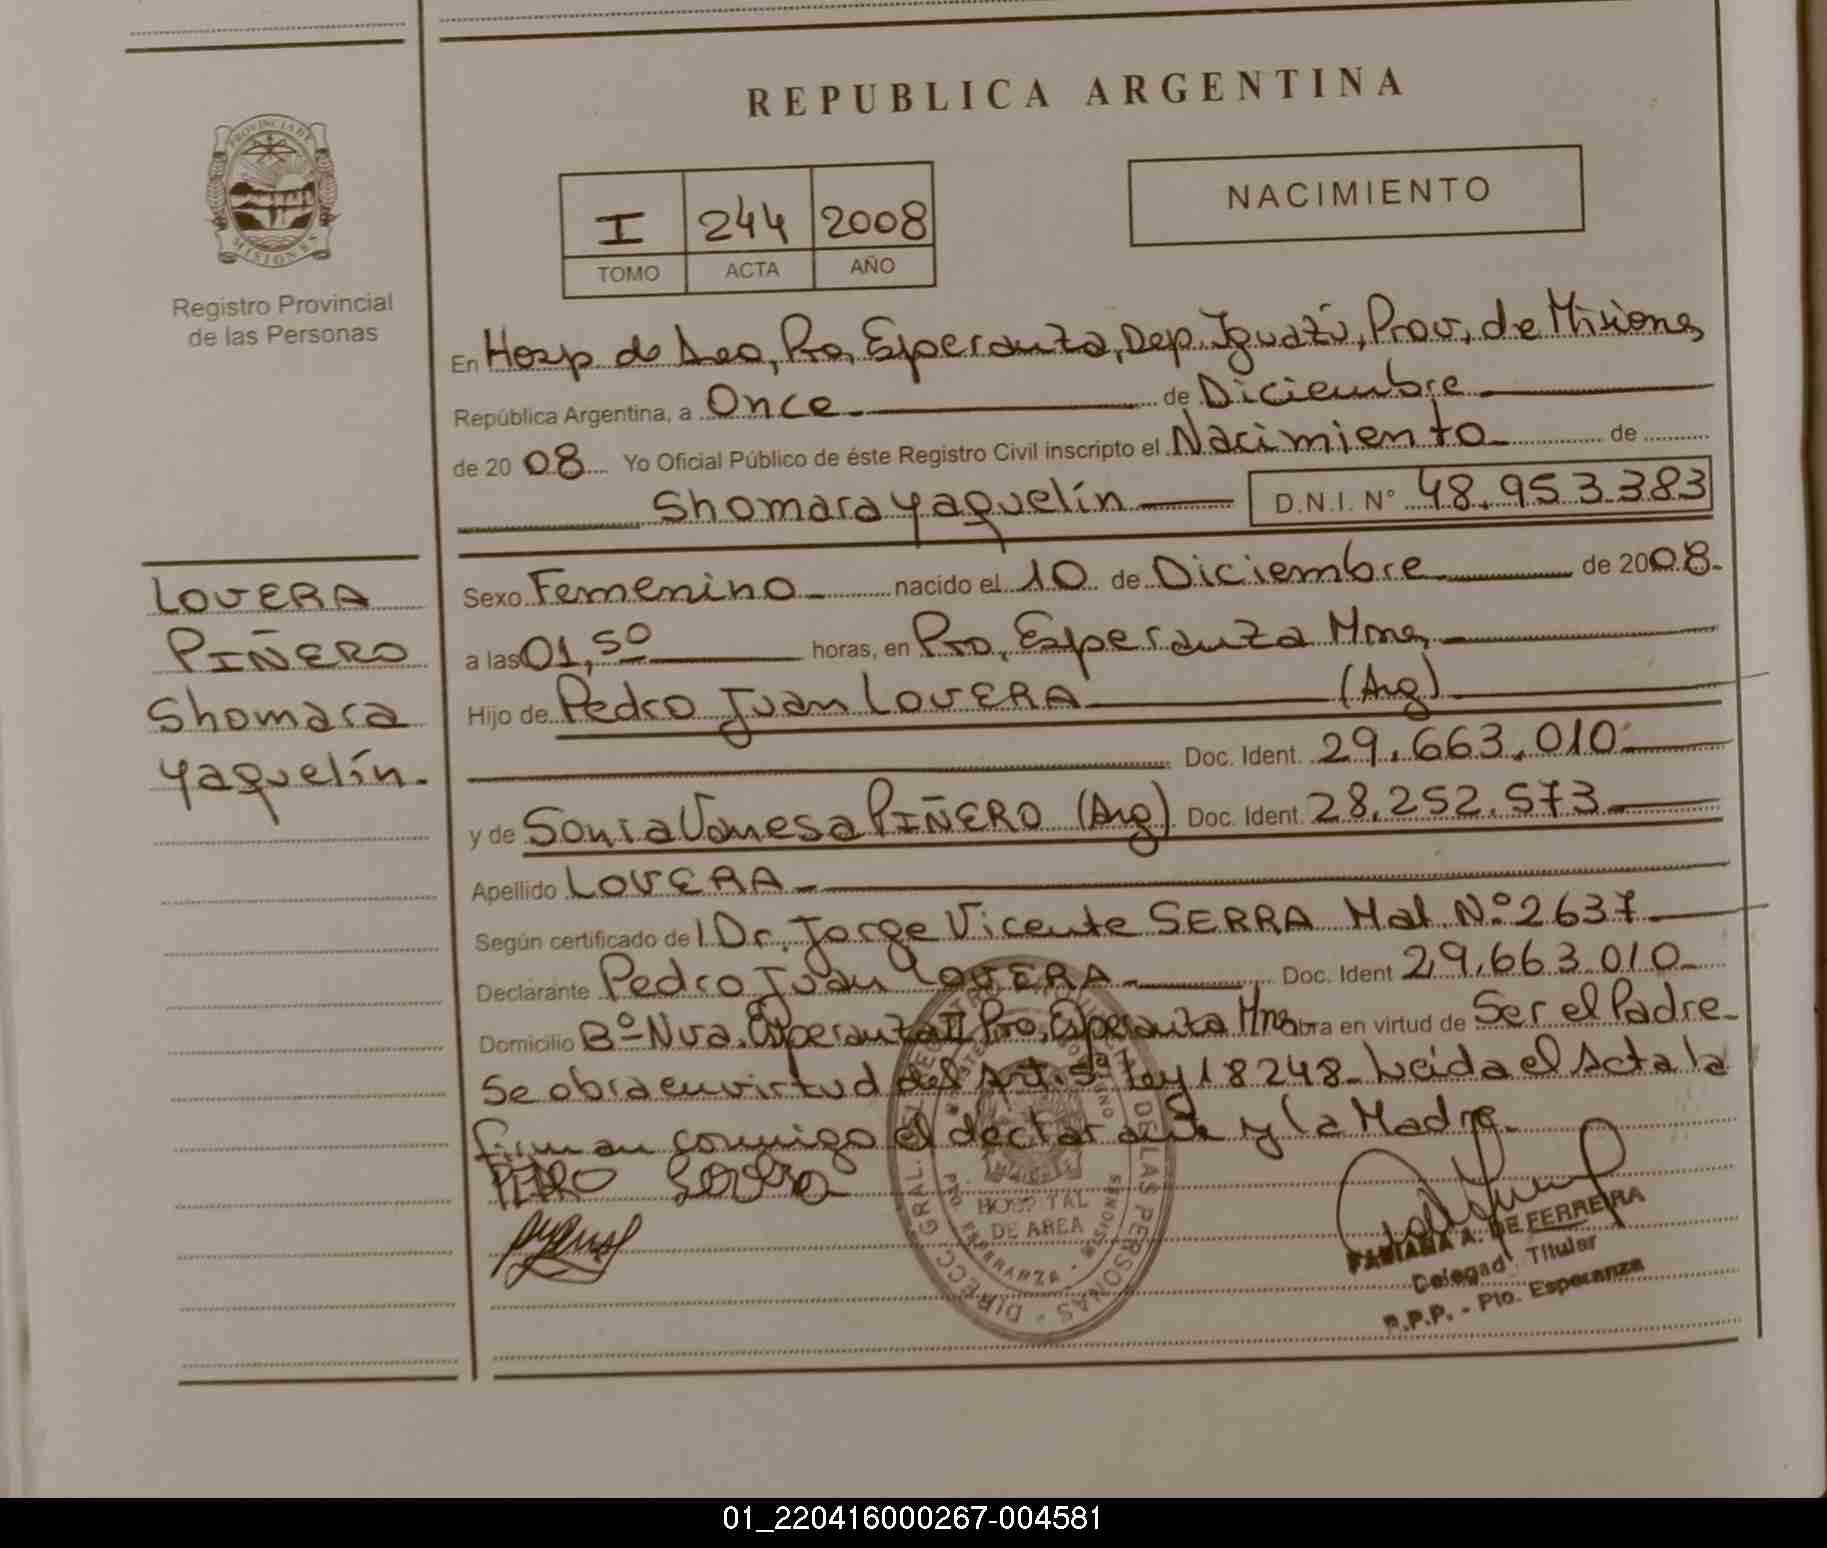 REPUBLICA ARGENTINA
PROVINCIA DE
MISIONES
Registro Provincial
de las Personas
I 244 2008
TOMO ACTA AÑO
NACIMIENTO
En Hosp. de Area, Pto. Esperanza, Dep. Iguazú, Prov. de Misiones
República Argentina, a Once de Diciembre
de 2008 Yo Oficial Público de éste Registro Civil inscripto el Nacimiento de
Shomara Yaquelín D.N.I. N° 48.953.383
LOVERA
PIÑERO
Shomara
Yaquelín.
Sexo Femenino nacido el 10 de Diciembre de 2008.
a las 01,50 horas, en Pto. Esperanza Mnes.
Hijo de Pedro Juan LOVERA (Arg)
Doc. Ident. 29.663.010
y de Sonia Vanesa PIÑERO (Arg) Doc. Ident. 28.252.573
Apellido LOVERA
Según certificado del Dr. Jorge Vicente SERRA Mat. N° 2637
Declarante Pedro Juan LOVERA Doc. Ident 29.663.010
Domicilio B° Nva. Esperanza II Pto. Esperanza Mnes. Obra en virtud de Ser el Padre
Se obra en virtud del Art. 5° Ley 18248. Leída el Acta la
firman conmigo el declarante y la Madre.
PEDRO Lovera
HOSPITAL
DE AREA
PTO. ESPERANZA - MISIONES
DE LAS PERSONAS - DIRECC. GRAL.
FABIANA A. DE FERREIRA
Delegad. Titular
R.P.P. - Pto. Esperanza
01_220416000267-004581